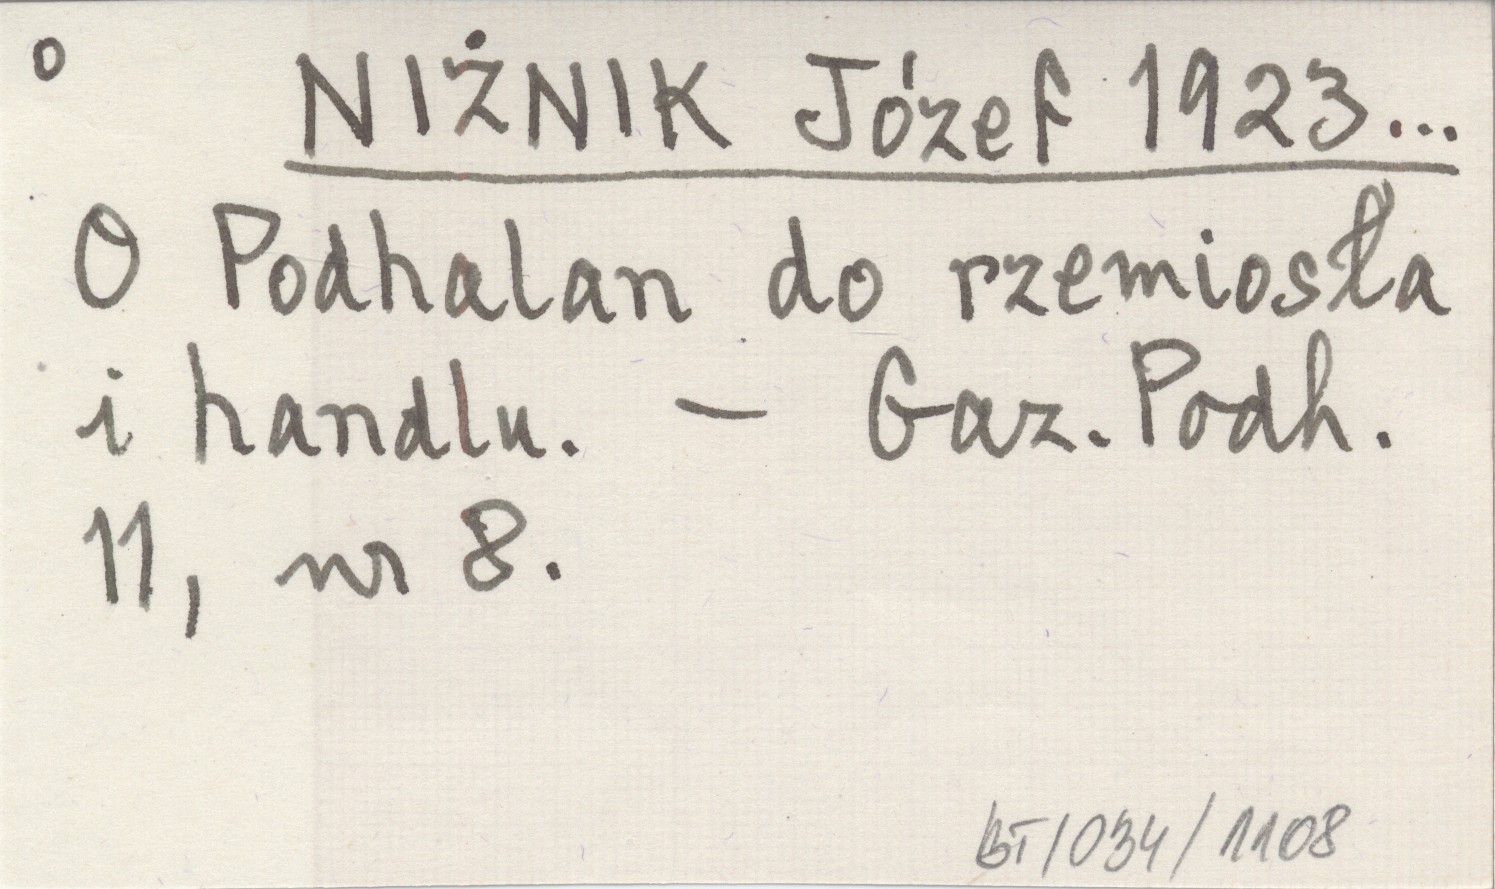 o
NIŻNIK Józef 1923...
O Podhalan do rzemiosła
i handlu. — Gaz. Podh.
11, nr 8.
BT/034/1108